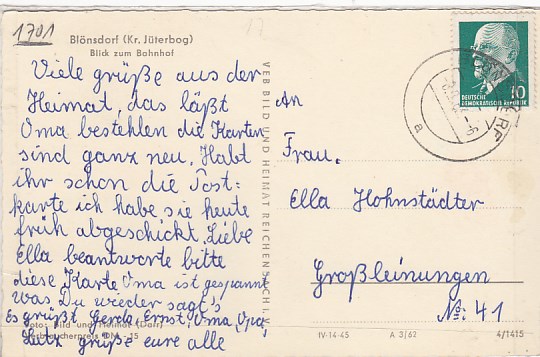 1701
Blönsdorf (Kr. Jüterbog)
Blick zum Bahnhof
Viele grüße aus der
Heimat, das läßt
Oma bestehlen die Karten
sind ganz neu. Habt
ihr schon die Post=
karte ich habe sie heute
früh abgeschickt. Liebe
Ella beantworte bitte
diese Karte Oma ist gespannt
was Du wieder sagst
Es grüßt Gerda, Ernst, Oma, Opa,
Lutz grüßt eure alle
Foto: Bild und Heimat (Darr)
Verbraucherpreis DM -,15
VEB BILD UND HEIMAT REICHENBACH I. V.
17
10
DEUTSCHE
DEMOKRATISCHE REPUBLIK
a
An
Frau.
Ella Hohnstädter
Großleinungen
No: 41
IV-14-45 A 3/62 4/1415